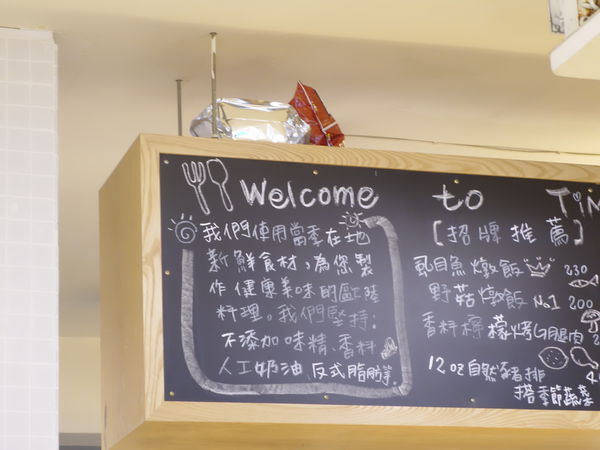 Welcome to TiM
我們使用當季在地
新鮮食材，為您製
作健康美味的歐陸
料理。我們堅持：
不添加味精、香料
人工奶油 反式脂肪等。
[招牌推薦]
虱目魚燉飯 230
野菇燉飯 No.1 200
香料檸檬烤G腿肉
12oz自然豬排
搭季節蔬菜